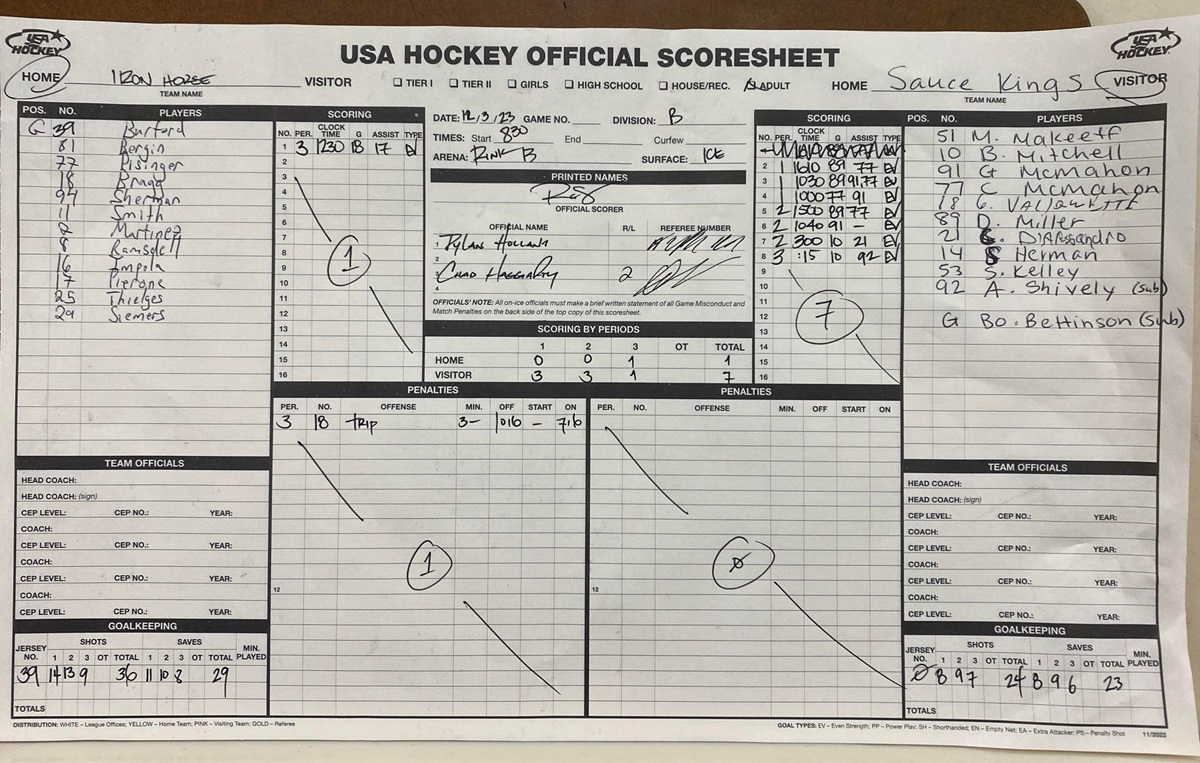 USA HOCKEY
USA HOCKEY OFFICIAL SCORESHEET
USA HOCKEY
HOME IRON HORSE VISITOR
TEAM NAME
☐ TIER I ☐ TIER II ☐ GIRLS ☐ HIGH SCHOOL ☐ HOUSE/REC. ☑ ADULT
HOME Sauce Kings VISITOR
TEAM NAME
POS. NO. PLAYERS
G 39 Burford
81 Bergin
77 Pisinger
18 Bragg
94 Sherman
11 Smith
2 Martinez
8 Ramsdell
16 Ampola
17 Pierone
25 Thielges
29 Siemers
SCORING
NO. PER. CLOCK TIME G ASSIST TYPE
1 3 1230 18 17 EV
2
3
4
5
6
7
8
9
10
11
12
13
14
15
16
1
DATE: 12/3/23 GAME NO. DIVISION: B
TIMES: Start 830 End Curfew
ARENA: Rink B SURFACE: ICE
PRINTED NAMES
OFFICIAL SCORER
OFFICIAL NAME R/L REFEREE NUMBER
1 Dylan Holland
2
3 Chad Haggarty 2
4
OFFICIALS' NOTE: All on-ice officials must make a brief written statement of all Game Misconduct and
Match Penalties on the back side of the top copy of this scoresheet.
SCORING BY PERIODS
1 2 3 OT TOTAL
HOME 0 0 1 1
VISITOR 3 3 1 7
SCORING
NO. PER. CLOCK TIME G ASSIST TYPE
2 1 1610 89 77 EV
3 1 1030 89 91,77 EV
4 1 1000 77 91 EV
5 2 1500 89 77 EV
6 2 1040 91 - EV
7 2 300 10 21 EV
8 3 :15 10 92 EV
9
10
11
12
13
14
15
16
7
POS. NO. PLAYERS
51 M. Makeeff
10 B. Mitchell
91 G McMahon
77 C McMahon
78 G.
89 D. Miller
21 D'Alessandro
14 S Herman
53 S. Kelley
92 A. Shively (sub)
G Bo. Bettinson (sub)
PENALTIES
PER. NO. OFFENSE MIN. OFF START ON
3 18 trip 3- 1016 - 716
12
1
PENALTIES
PER. NO. OFFENSE MIN. OFF START ON
12
0
TEAM OFFICIALS
HEAD COACH:
HEAD COACH: (sign)
CEP LEVEL: CEP NO.: YEAR:
COACH:
CEP LEVEL: CEP NO.: YEAR:
COACH:
CEP LEVEL: CEP NO.: YEAR:
COACH:
CEP LEVEL: CEP NO.: YEAR:
GOALKEEPING
JERSEY NO. SHOTS SAVES MIN. PLAYED
1 2 3 OT TOTAL 1 2 3 OT TOTAL
39 14 13 9 36 11 10 8 29
TOTALS
TEAM OFFICIALS
HEAD COACH:
HEAD COACH: (sign)
CEP LEVEL: CEP NO.: YEAR:
COACH:
CEP LEVEL: CEP NO.: YEAR:
COACH:
CEP LEVEL: CEP NO.: YEAR:
COACH:
CEP LEVEL: CEP NO.: YEAR:
GOALKEEPING
JERSEY NO. SHOTS SAVES MIN. PLAYED
1 2 3 OT TOTAL 1 2 3 OT TOTAL
0 8 9 7 24 8 9 6 23
TOTALS
DISTRIBUTION: WHITE – League Offices; YELLOW – Home Team; PINK – Visiting Team; GOLD – Referee
GOAL TYPES: EV – Even Strength; PP – Power Play; SH – Shorthanded; EN – Empty Net; EA – Extra Attacker; PS – Penalty Shot 11/2022